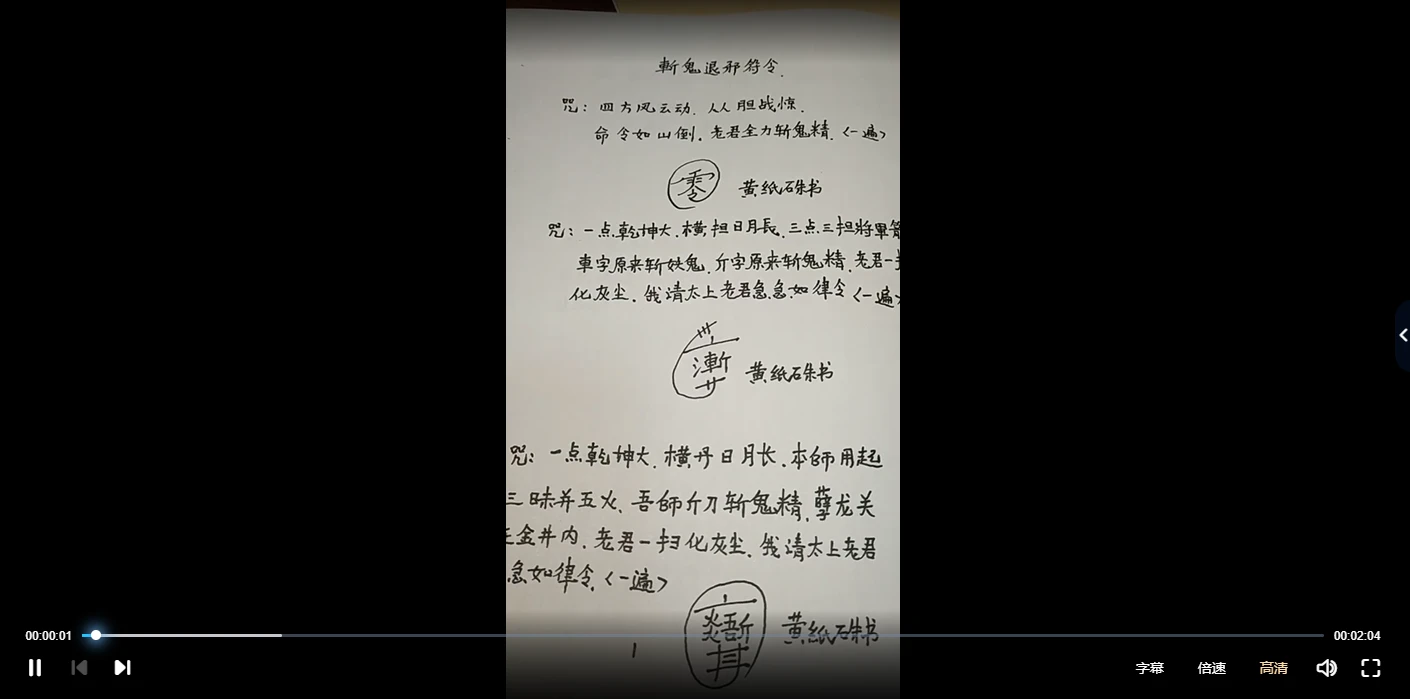 斬鬼退邪符令.
咒：四方风云动.人人胆战惊.
命令如山倒.老君全力斩鬼精.〈一遍〉
零 黄纸硃书
咒：一点乾坤大.横担日月長.三点三担將軍
車字原来斩妖鬼.斤字原来斩鬼精.老君一
化灰尘.俄请太上老君急急如律令〈一遍〉
黄纸硃书
咒：一点乾坤大.横丹日月长.本師用起
三昧并五火.吾師斤刀斩鬼精.孽龙关
金井内.老君一扫化灰尘.俄请太上老君
急如律令.〈一遍〉
黄纸硃书
1
00:00:01
00:02:04
字幕 倍速 高清